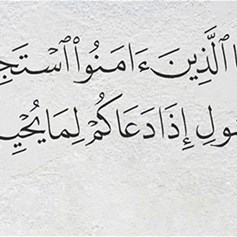 ا ٱلَّذِينَ ءَامَنُوا۟ ٱسْتَجِ
سُولِ إِذَا دَعَاكُمْ لِمَا يُحْيِي